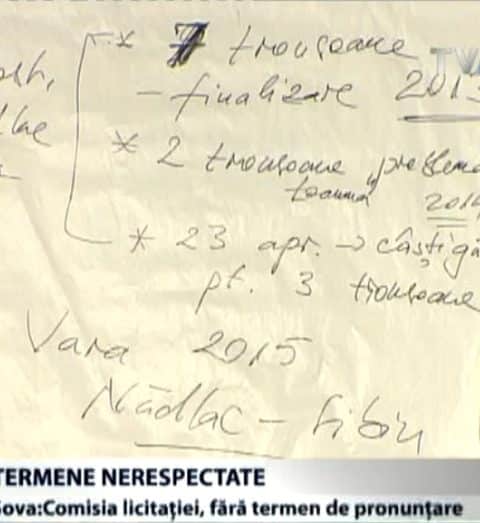 * 7 tronsoane
TV
- finalizare 2013
* 2 tronsoane
toamnă
* 23 apr. → câștigă
pt. 3 tronsoane
Vara 2015
Nădlac - Sibiu
TERMENE NERESPECTATE
Șova:Comisia licitației, fără termen de pronunțare